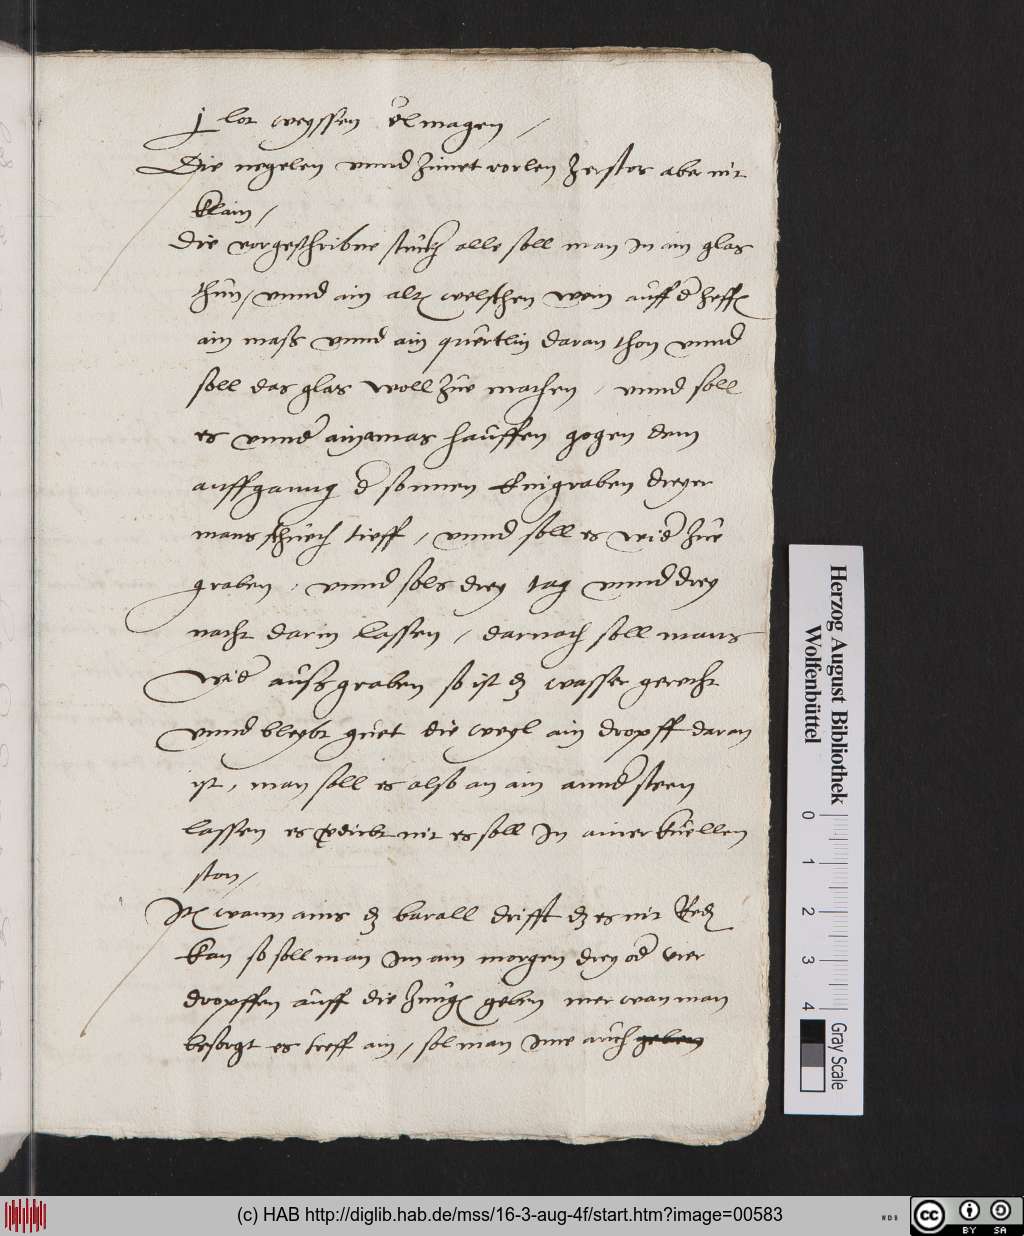 j lot weyssen ölmagen /
Die negelen vnnd zimet rorlen zerstos aber nit
klain /
die vorgeschribne stuckh alle soll man in ain glas
thun / vnnd ain alt welschen wein auff d heff
ain mass vnnd ain quertlin daran thon vnnd
soll das glas woll zue machen / vnnd soll
es vnnd amas hauffen gegen dem
auffganng d sonnen eingraben dreyer
mans schuech tieff / vnnd soll es wid zue
graben / vnnd sols drey tag vnnd drey
nacht darin lassen / darnach soll mans
wid aussgraben so ist dz wasser gerecht
vnnd bleybt guet die weyl ain dropff daran
ist / man soll es also an ain annd steen
lassen es vdirbt nit es soll in ainer kuellen
ston /
Jt wann ains dz barall drifft dz es nit Red
kan so soll man im am morgen drey od vier
dropffen auff die zung geben mer wan man
besorgt es treff ain / sol man ime auch geben
Herzog August Bibliothek
Wolfenbüttel
0 1 2 3 4
Gray Scale
(c) HAB http://diglib.hab.de/mss/16-3-aug-4f/start.htm?image=00583
WDB
cc BY SA